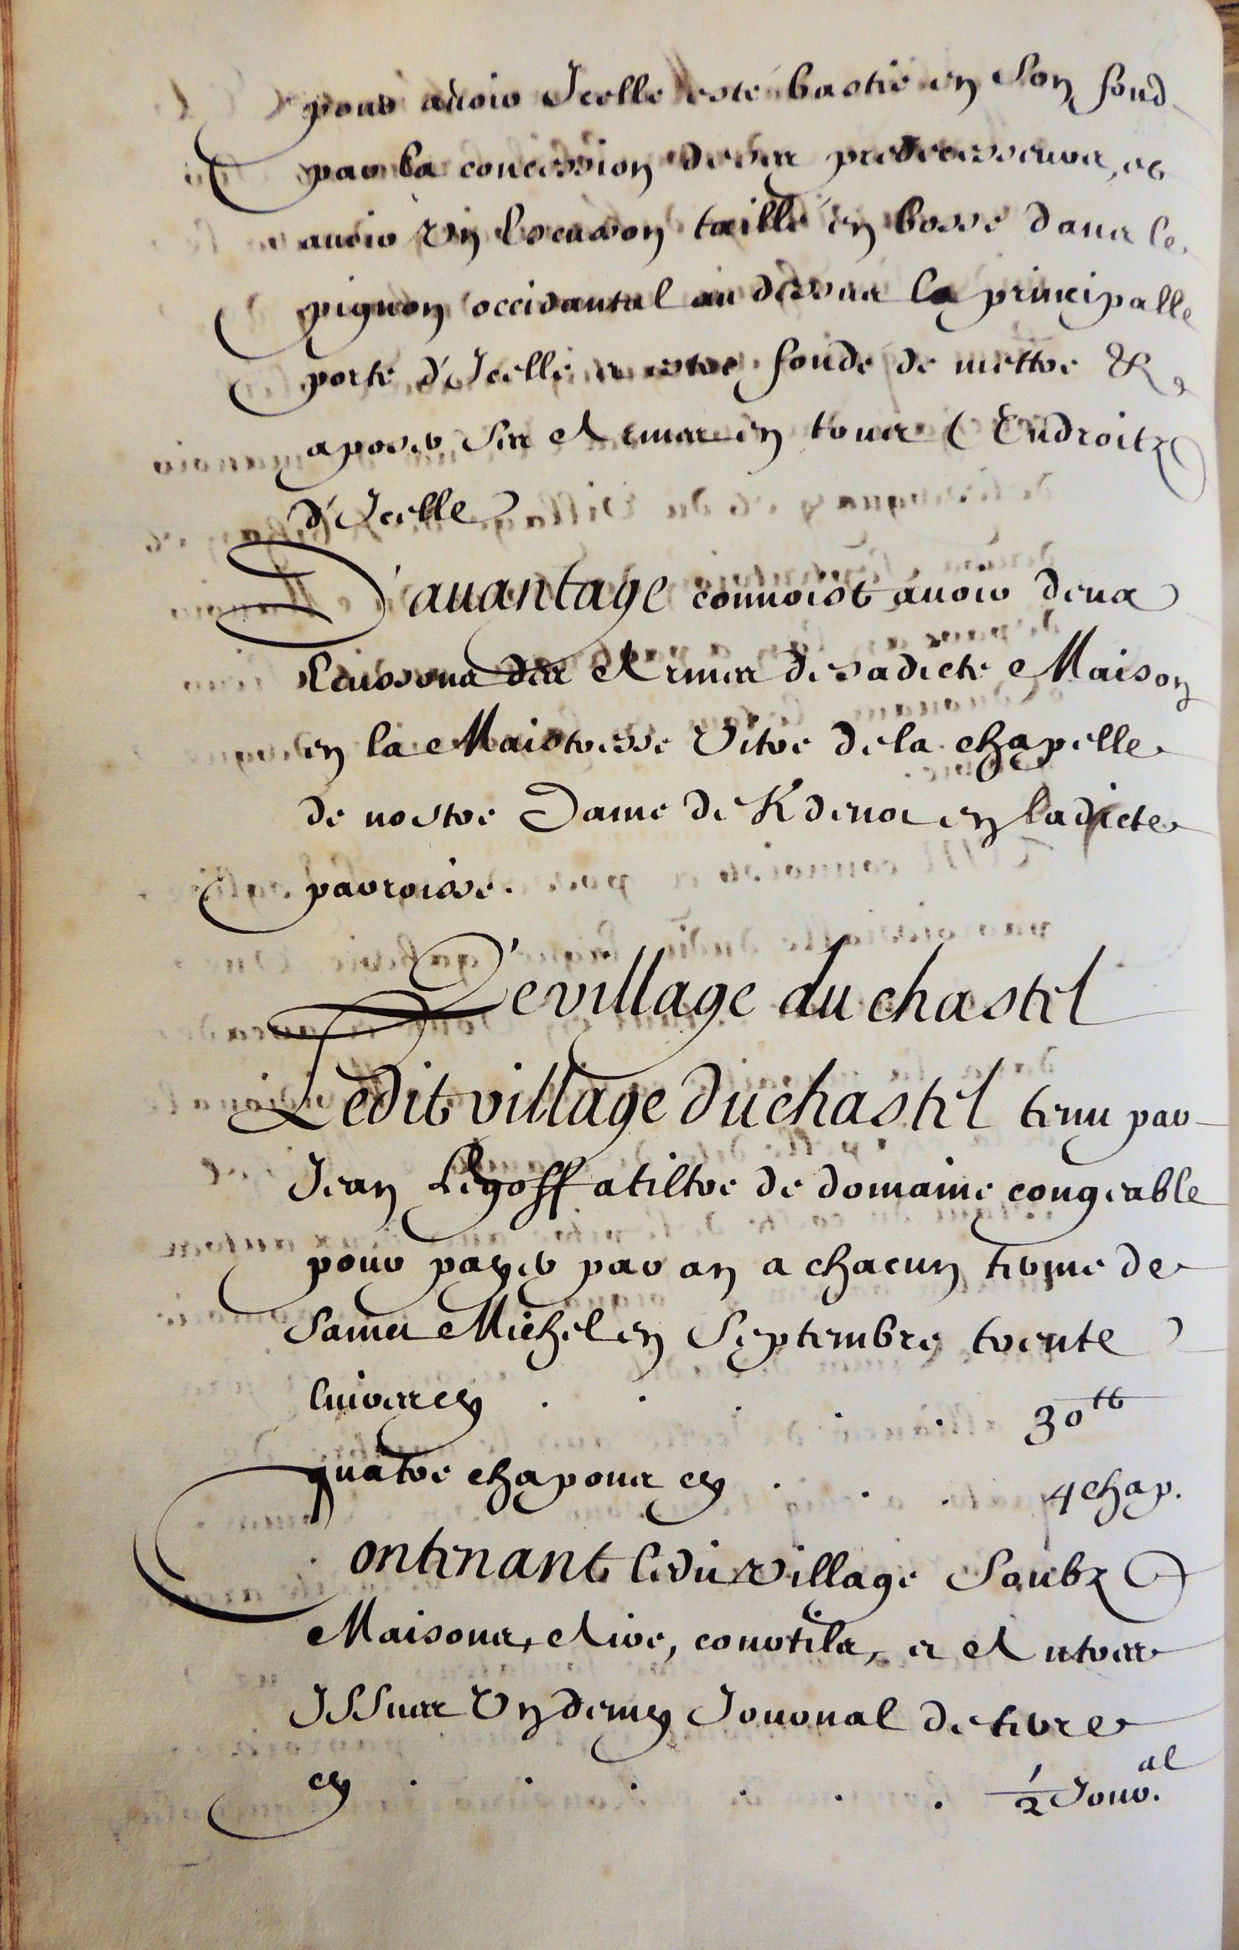 pour auoir Jcelle esté bastie en Son fond
par la concession de ses predecesseurs, et
auoir Vn Escusson taillé en bosse dans le
pignon occidantal au dessus la principalle
porte d'Jcelle et estre fondé de mettre &
aposer Ses Armes en tous Endroitz
d'Jcelle
D'auantage connoist auoir deux
Escussons des Armes de sadicte Maison
en la Maistresse Vitre de la chapelle
de nostre Dame de Kdenot en ladicte
parroisse.
Le village du chastel
Ledit village du chastel tenu par
Jean Legoff a tiltre de domaine congeable
pour payer par an a chacun terme de
Sainct Michel en Septembre trente
Liures cy . . . . . 30tt
quatre chapons cy . . . 4 chap.
Contenant ledit village Soubz
Maisons, Aire, courtils, et Autres
JSSues Vn demy Journal de terre
cy . . . . . . 1/2 Jour.al